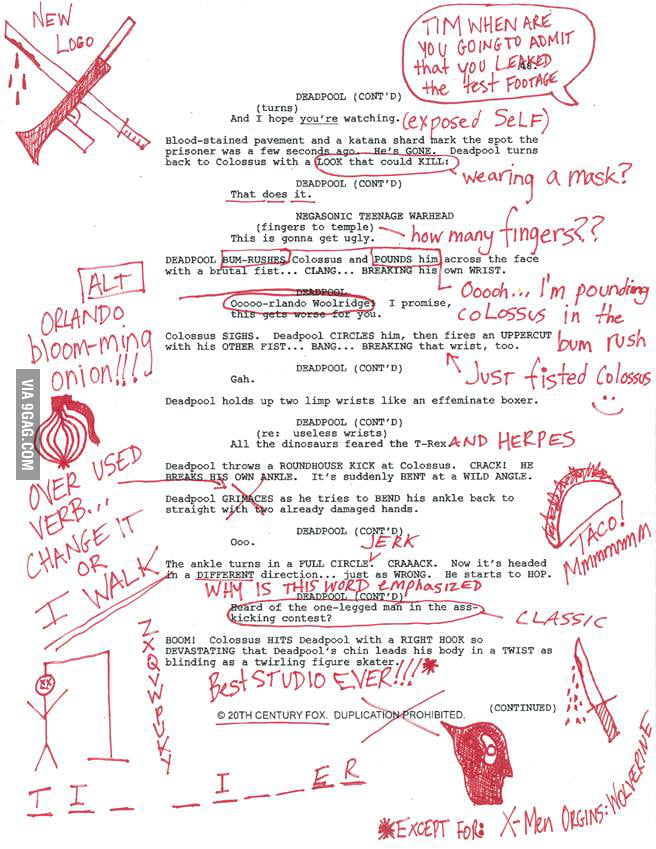 NEW
LOGO
TIM WHEN ARE
YOU GOING TO ADMIT
that YOU LEAKED
the test FOOTAGE
48.
DEADPOOL (CONT'D)
(turns)
And I hope you're watching.
(exposed SELF)
Blood-stained pavement and a katana shard mark the spot the
prisoner was a few seconds ago. He's GONE. Deadpool turns
back to Colossus with a LOOK that could KILL:
wearing a mask?
DEADPOOL (CONT'D)
That does it.
NEGASONIC TEENAGE WARHEAD
(fingers to temple)
This is gonna get ugly.
how many fingers??
DEADPOOL BUM-RUSHES Colossus and POUNDS him across the face
with a brutal fist... CLANG... BREAKING his own WRIST.
Ooooh... I'm pounding
COLOSSUS in the
bum rush
ALT
ORLANDO
bloom-ming
onion!!!
DEADPOOL
Ooooo-rlando Woolridge! I promise,
this gets worse for you.
Colossus SIGHS. Deadpool CIRCLES him, then fires an UPPERCUT
with his OTHER FIST... BANG... BREAKING that wrist, too.
JUST fisted Colossus
DEADPOOL (CONT'D)
Gah.
Deadpool holds up two limp wrists like an effeminate boxer.
DEADPOOL (CONT'D)
(re: useless wrists)
All the dinosaurs feared the T-Rex
AND HERPES
VIA 9GAG.COM
Deadpool throws a ROUNDHOUSE KICK at Colossus. CRACK! HE
BREAKS HIS OWN ANKLE. It's suddenly BENT at a WILD ANGLE.
OVER USED
VERB...
CHANGE IT
OR
I WALK
Deadpool GRIMACES as he tries to BEND his ankle back to
straight with two already damaged hands.
TACO!
Mmmmmmm
DEADPOOL (CONT'D)
Ooo.
JERK
The ankle turns in a FULL CIRCLE. CRAAACK. Now it's headed
in a DIFFERENT direction... just as WRONG. He starts to HOP.
WHY IS THIS WORD emphasized
DEADPOOL (CONT'D)
Heard of the one-legged man in the ass-
kicking contest?
CLASSIC
BOOM! Colossus HITS Deadpool with a RIGHT HOOK so
DEVASTATING that Deadpool's chin leads his body in a TWIST as
blinding as a twirling figure skater.
Best STUDIO EVER!!!*
(CONTINUED)
© 20TH CENTURY FOX. DUPLICATION PROHIBITED.
T I _ _ I _ _ E R
*EXCEPT FOR: X-Men ORGINS: WOLVERINE